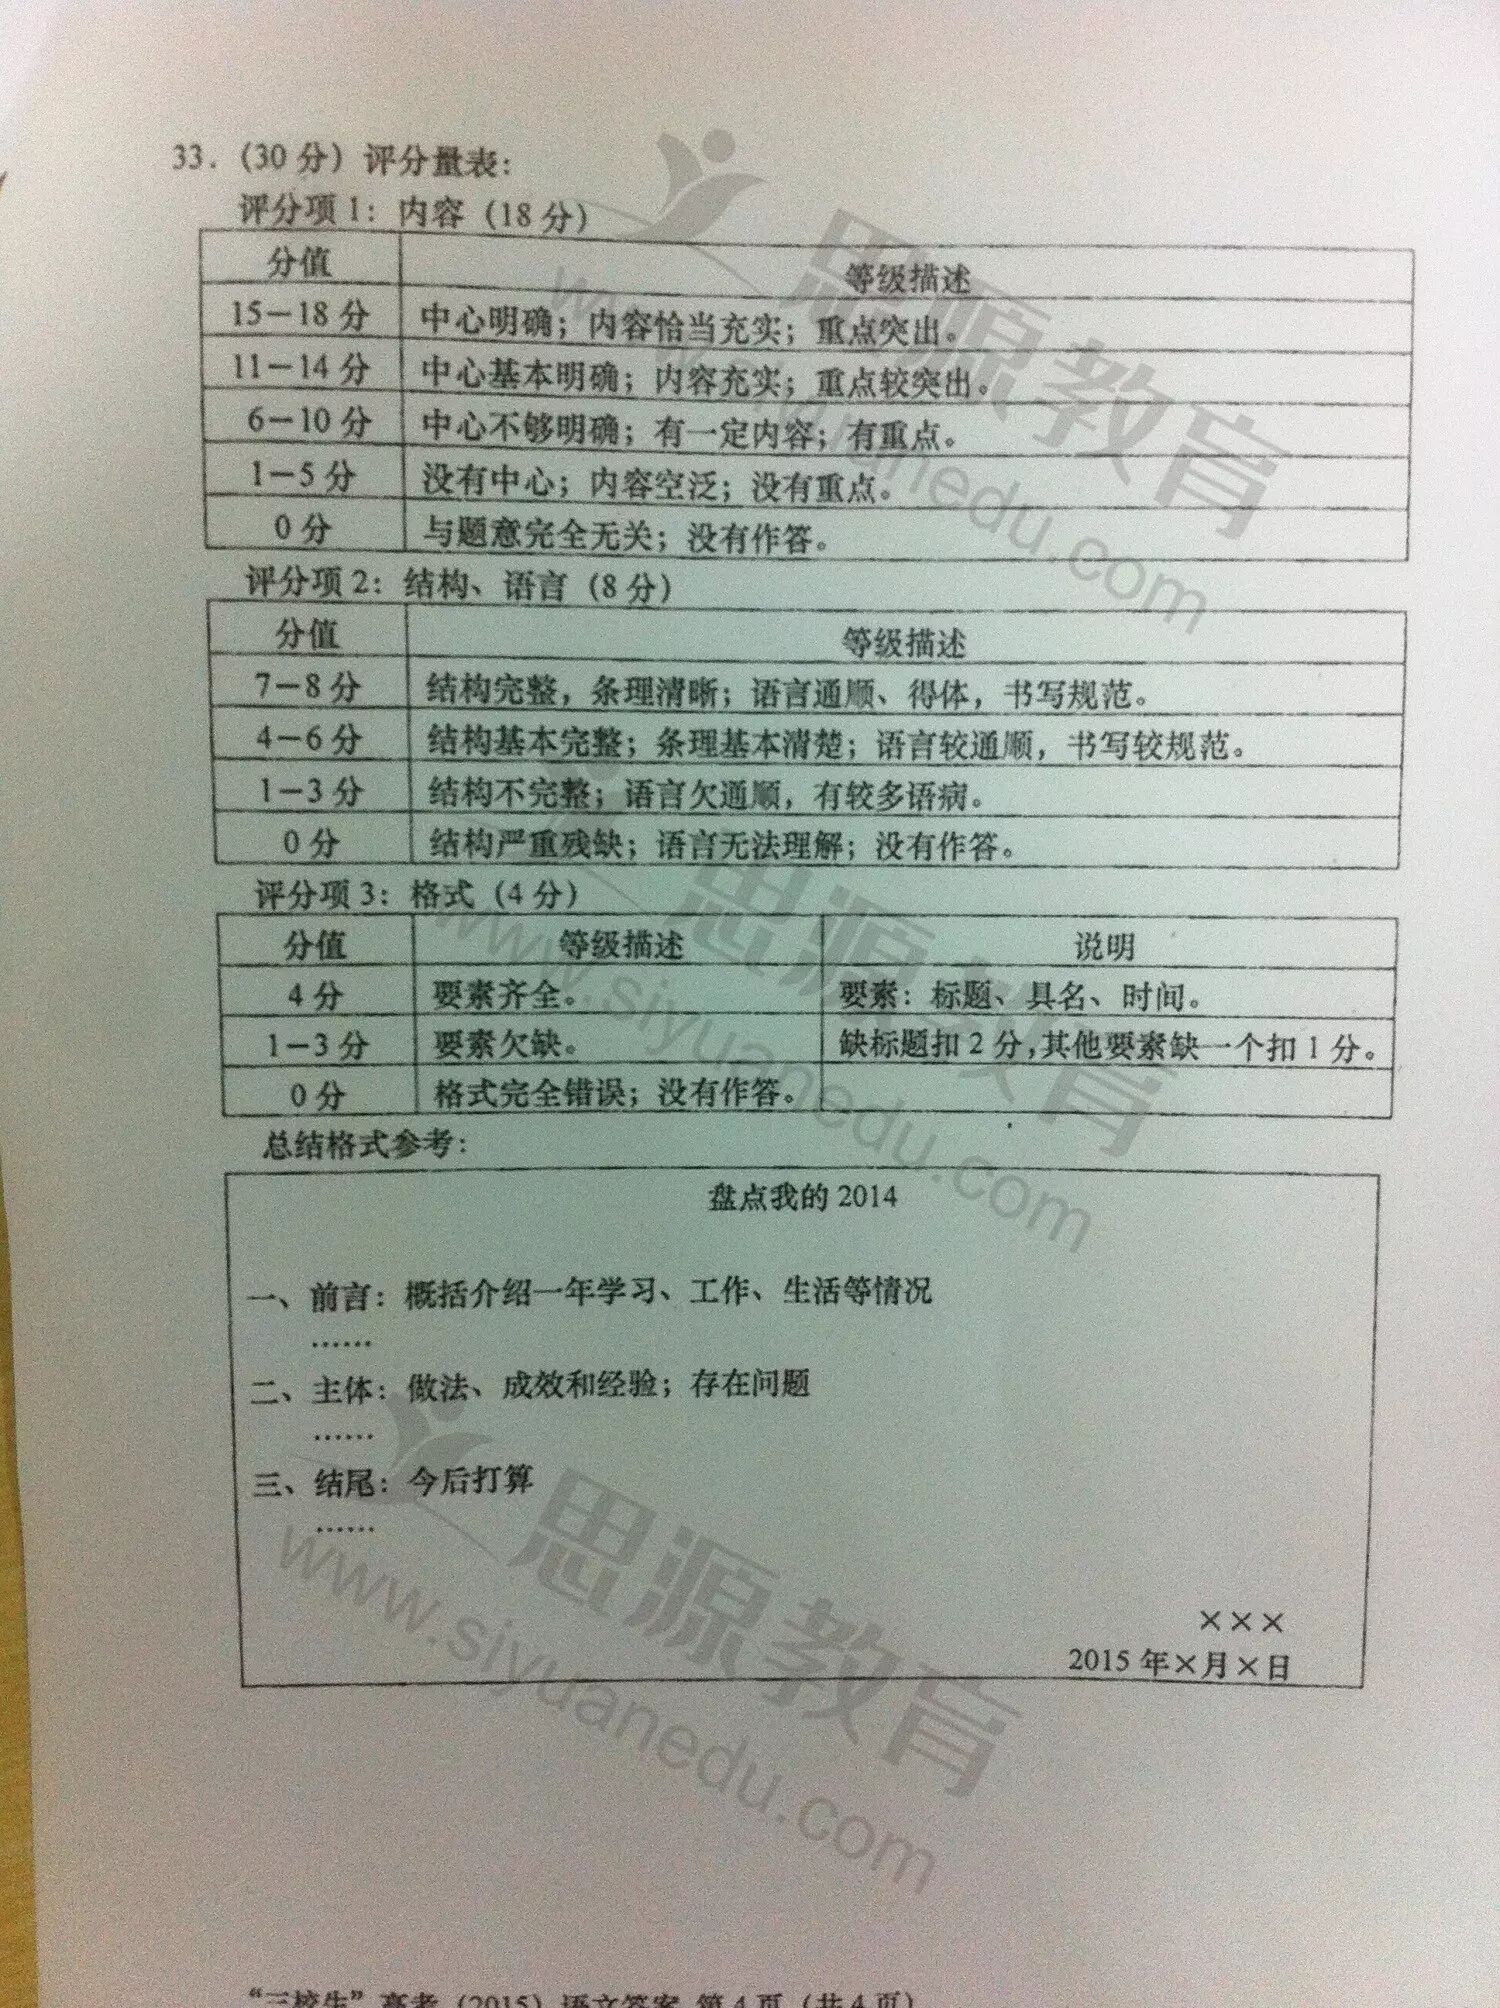 33．（30 分）评分量表：
评分项 1：内容（18 分）
分值 等级描述
15－18 分 中心明确；内容恰当充实；重点突出。
11－14 分 中心基本明确；内容充实；重点较突出。
6－10 分 中心不够明确；有一定内容；有重点。
1－5 分 没有中心；内容空泛；没有重点。
0 分 与题意完全无关；没有作答。
评分项 2：结构、语言（8 分）
分值 等级描述
7－8 分 结构完整，条理清晰；语言通顺、得体，书写规范。
4－6 分 结构基本完整；条理基本清楚；语言较通顺，书写较规范。
1－3 分 结构不完整；语言欠通顺，有较多语病。
0 分 结构严重残缺；语言无法理解；没有作答。
评分项 3：格式（4 分）
分值 等级描述 说明
4 分 要素齐全。 要素：标题、具名、时间。
1－3 分 要素欠缺。 缺标题扣 2 分，其他要素缺一个扣 1 分。
0 分 格式完全错误；没有作答。
总结格式参考：
盘点我的 2014
一、前言：概括介绍一年学习、工作、生活等情况
……
二、主体：做法、成效和经验；存在问题
……
三、结尾：今后打算
……
×××
2015 年×月×日
“三校生”高考（2015）语文答案 第 4 页（共 4 页）
思源教育
www.siyuanedu.com
思源教育
www.siyuanedu.com
思源教育
www.siyuanedu.com